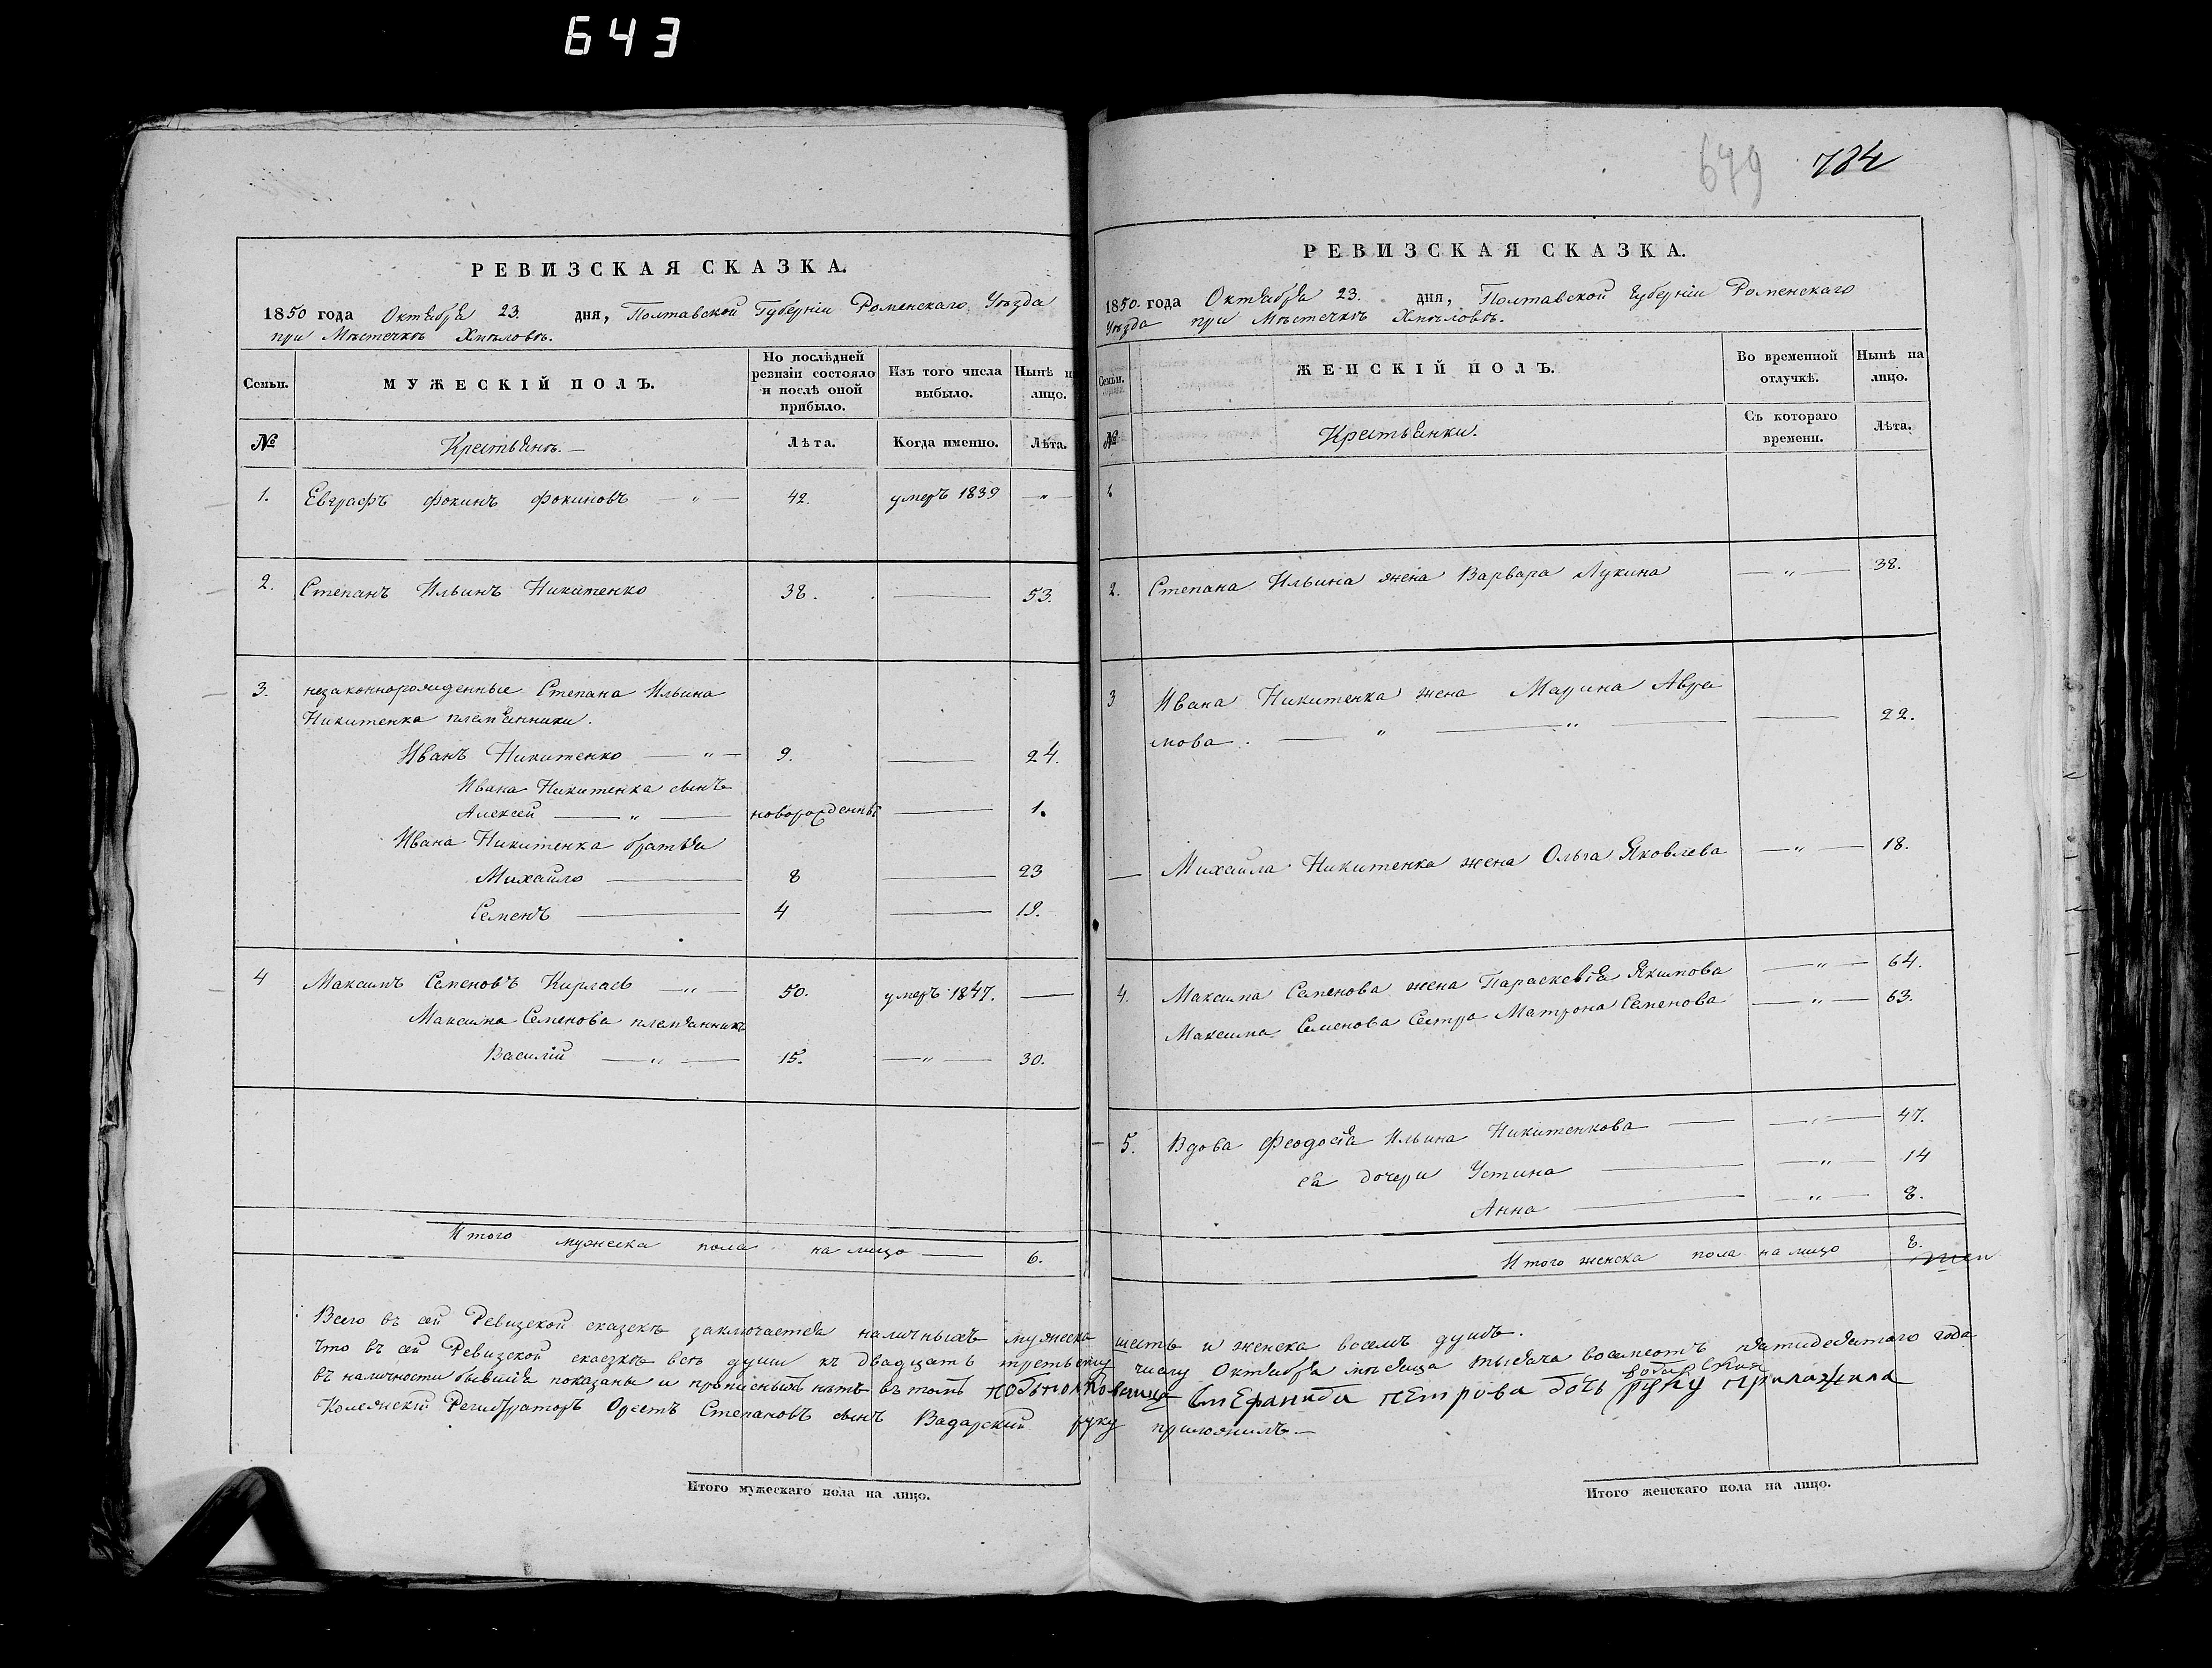 643
649 784
РЕВИЗСКАЯ СКАЗКА.
1850 года Октября 23 дня, Полтавской Губерніи Роменскаго Уѣзда
при Мѣстечкѣ Хмѣловѣ.
Семьи. МУЖЕСКІЙ ПОЛЪ. По послѣдней ревизіи состояло и послѣ оной прибыло. Изъ того числа выбыло. Нынѣ на лицо.
№ Крестьянъ.— Лѣта. Когда именно. Лѣта.
1. Евграфъ Фокинъ Фокиновъ — " — 42. умеръ 1839 — " —
2. Степанъ Ильинъ Никитенко 38. — 53.
3. незаконнорожденные Степана Ильина
Никитенка племянники.
Иванъ Никитенко — " — 9. — 24.
Ивана Никитенка сынъ
Алексей — " — новорожденный — 1.
Ивана Никитенка братья
Михайло — 8 — 23
Семенъ — 4 — 19.
4 Максимъ Семеновъ Кирпаевъ — " — 50. умеръ 1847. —
Максима Семенова племянникъ
Василій — " — 15. — " — 30.
Итого мужеска пола на лицо — 6.
РЕВИЗСКАЯ СКАЗКА.
1850 года Октября 23. дня, Полтавской Губерніи Роменскаго
Уѣзда при Мѣстечкѣ Хмѣловѣ.
Семьи. ЖЕНСКІЙ ПОЛЪ. Во временной отлучкѣ. Нынѣ на лицо.
№ Крестьянки. Съ котораго времени. Лѣта.
1
2. Степана Ильина жена Варвара Лукина — " — 38.
3 Ивана Никитенка жена Марина Авра
мова. — " — " — 22.
— Михайла Никитенка жена Ольга Яковлева — " — 18.
4. Максима Семенова жена Параскевія Якимова — " — 64.
Максима Семенова Сестра Матрона Семенова — " — 63.
5. Вдова Феодосія Ильина Никитенкова — " — 47.
ея дочери Устина — " — 14
Анна — " — 8.
Итого женска пола на лицо 8.
Всего въ сей Ревизской сказскѣ заключается наличныхъ мужеска шесть и женска восемъ душъ.
Что въ сей Ревизской сказкѣ всѣ души къ двадцать третьему числу Октября мѣсяца тысяча восемсотъ пятидесятаго года
въ наличности бывшія показаны и прописныхъ нѣтъ въ томъ подполковница Стефанида петрова дочь руку приложила
Колежскій Регистраторъ Орестъ Степановъ сынъ Вадарский руку приложилъ—
Итого мужескаго пола на лицо.
Итого женскаго пола на лицо.